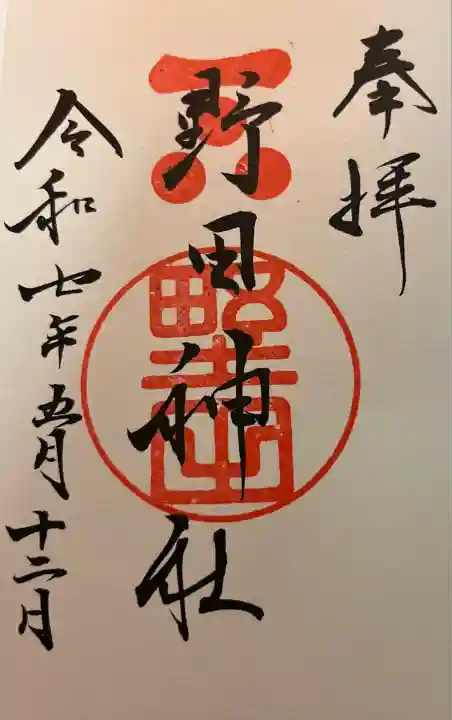 奉拝
野田神社
令和七年五月十二月